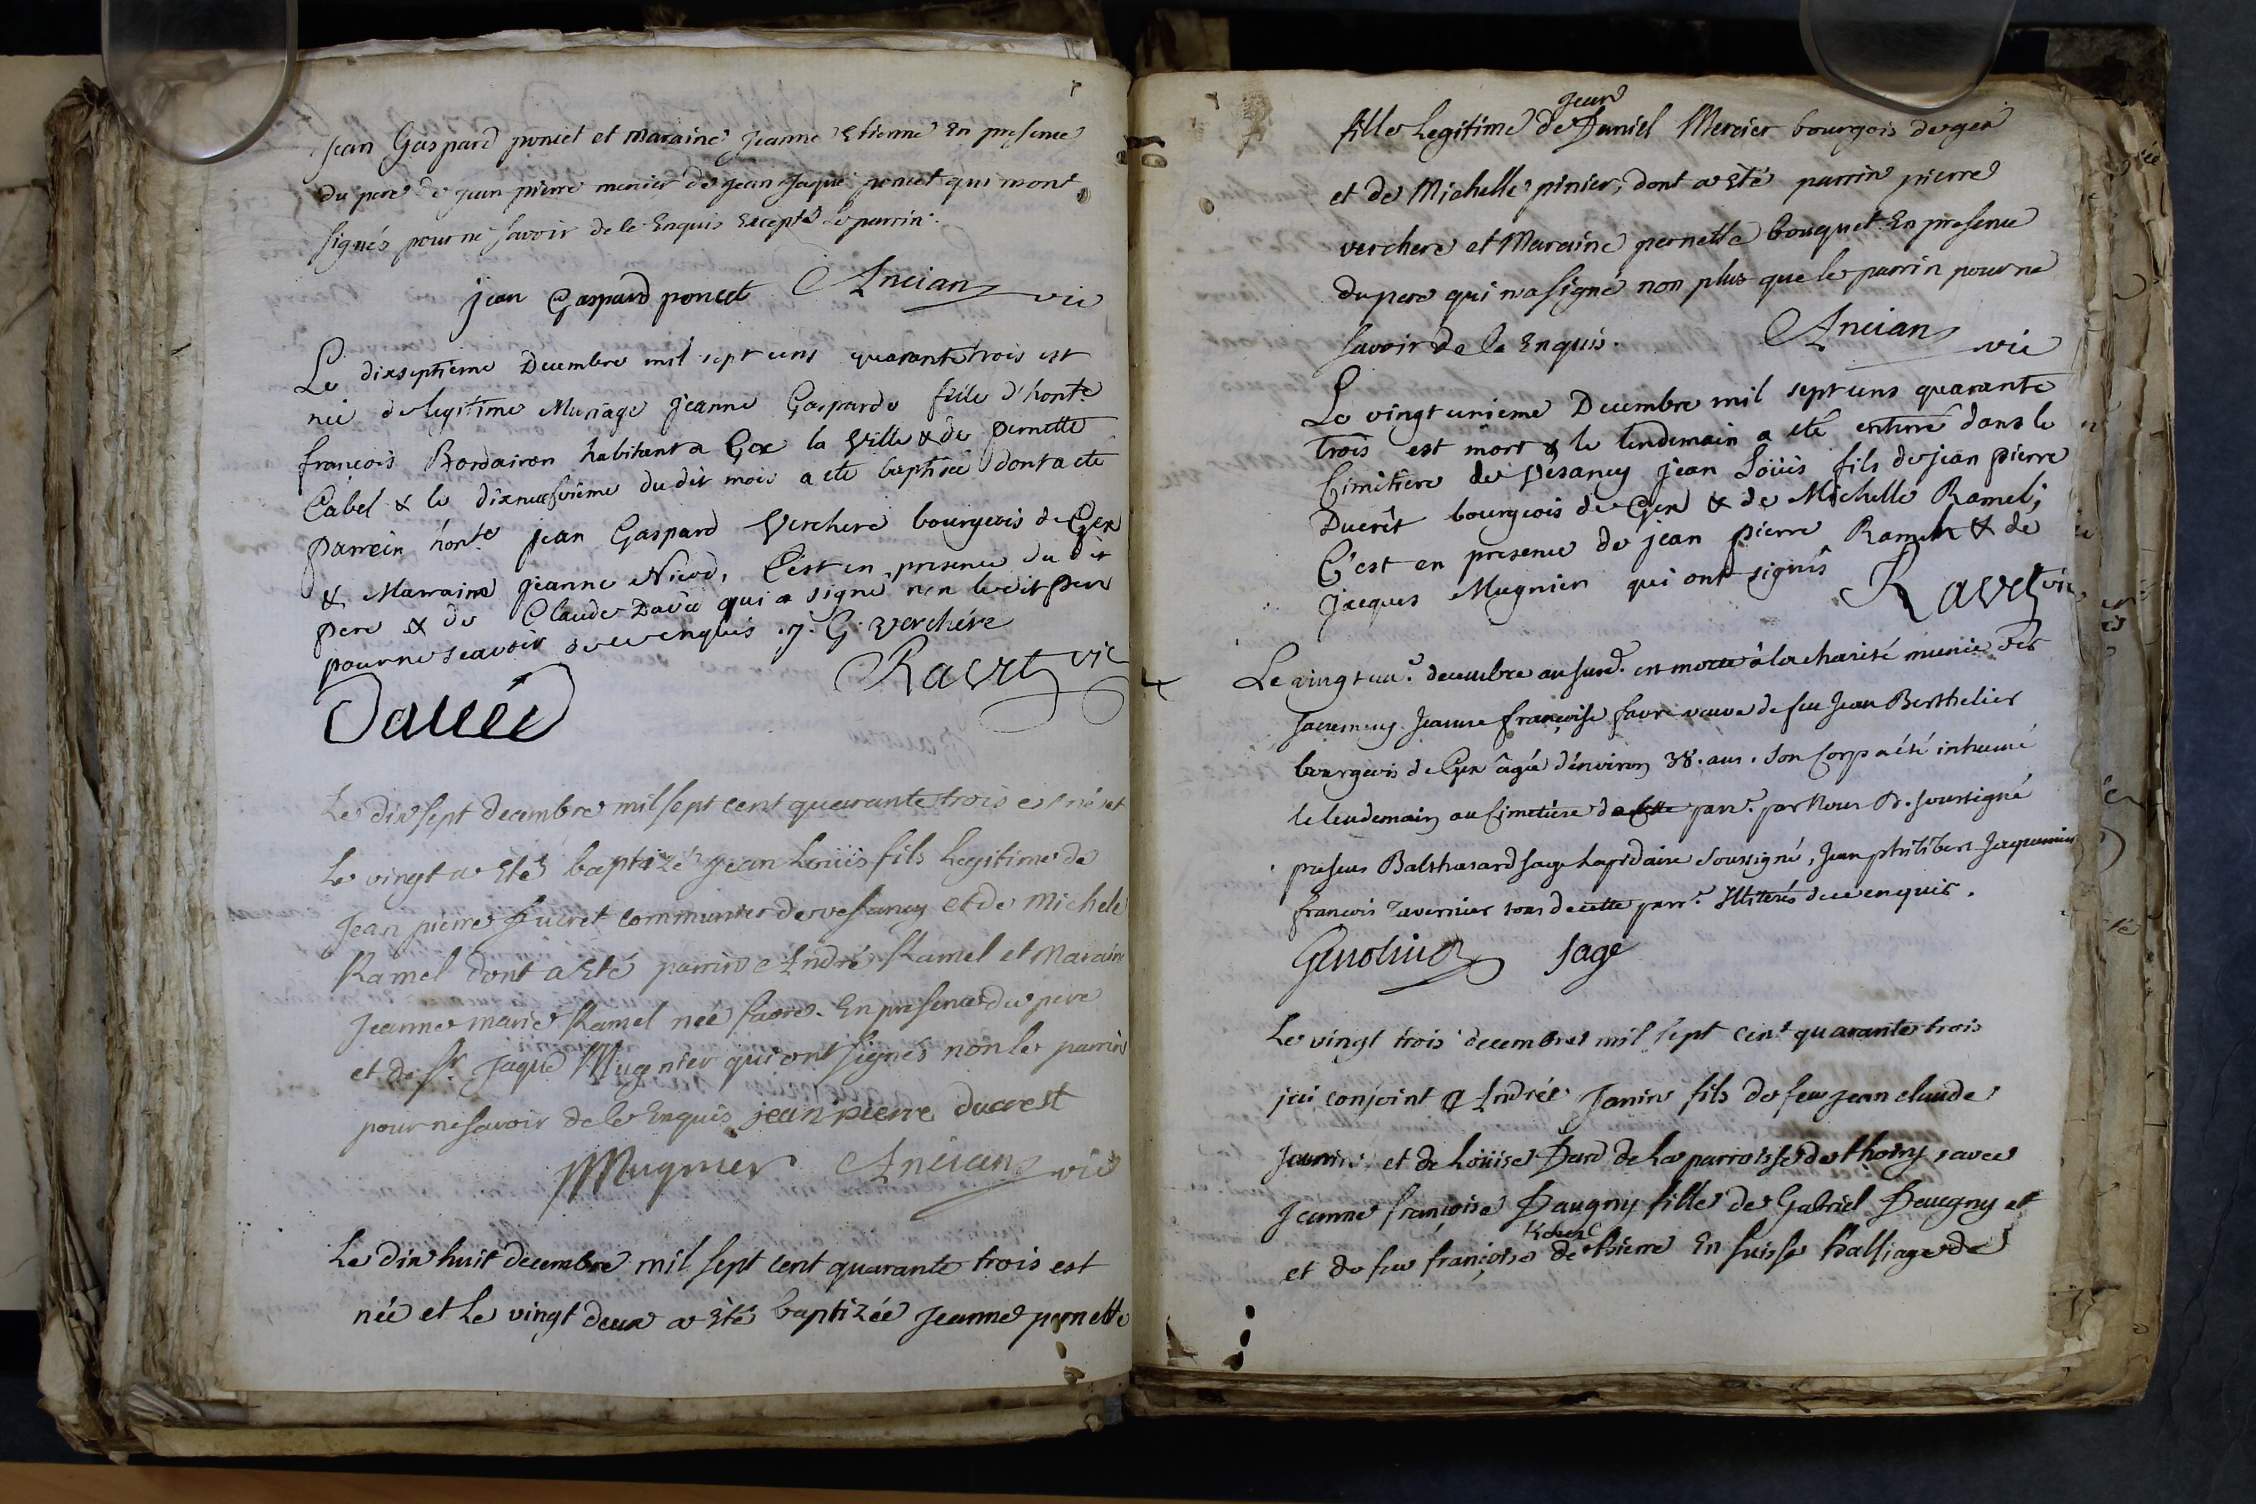 Jean Gaspard poncet et maraine Jeanne Etienne En presence
du pere de jean pierre mercier de jean Jaque poncet qui n'ont
signés pour ne savoir de le Enquis Excepté le parrin.
jean Gaspard poncet Ancian vic
Le dixseptieme Decembre mil sept cens quarante trois est
née de legitime Mariage Jeanne Gasparde fille d'honte
françois Bordairon habitant a Gex la Ville & de pernette
Cabel & le dixneufvieme du dit mois a ete baptisée dont a ete
parrein honte jean Gaspard Verchere bourgeois de Gex
& Marraine Jeanne Nicod, C'est en presence du dit
pere & de Claude David qui a signé non ledit pere
pour ne scavoir de ce enquis. J. G. verchére
Ravet vic
Le dix sept decembre mil sept cent quarante trois est né et
Le vingt a Eté baptizé jean Loüis fils Legitime de
Jean pierre Ducret communier de vesancy et de Michele
Ramel dont a Eté parrin André Ramel et Maraine
Jeanne marie Ramel neé favre. En presence du pere
et de Sr. Jaque Mugnier qui ont signés non le parrin
pour ne savoir de le Enquis jean pierre ducrest
Mugnier Ancian vic
Le dix huit decembre mil sept cent quarante trois est
née et Le vingt deux a Eté baptizée Jeanne pernette
jean
fille Legitime de Daniel Mercier bourgois de gex
et de Michelle pinier, dont a Eté parrin pierre
verchere et Maraine pernette bouquet En presence
du pere qui n'a signé non plus que le parrin pour ne
savoir de le Enquis. Ancian vic
Le vingt unieme Decembre mil sept cens quarante
trois est mort & le lendemain a eté enterré dans le
Cimitiere de Vesancy jean Loüis fils de jean pierre
Ducrêt bourgeois de Gex & de Michelle Ramel;
C'est en presence de jean pierre Ramel & de
jacques Mugnier qui ont signés Ravet vic
Le vingt un.e decembre an susd. est morte à la charité munie des
sacremens Jeanne françoise favre veuve de feu Jean Berthelier
bourgeois de Gex âgée d'environ 38. ans. Son Corp a été inhumé
le lendemain au Cimetiere de cette parr.e par Nous P. soussigné
presens Balthasard sage Lapidaire soussigné, Jean philibert Jacquemier
françois Tavernier tous de cette parr.e Illiterés de ce enquis.
Genolin sage
Le vingt trois decembre mil sept cent quarante trois
j'ai conjoint André Janin fils de feu jean claude
Janin, et de Loüise Dard de la parroisse de thoiry, avec
Jeanne françoise Daugny fille de Gabriel Daugny et
et de feu françoise de thierre En suisse balliage de